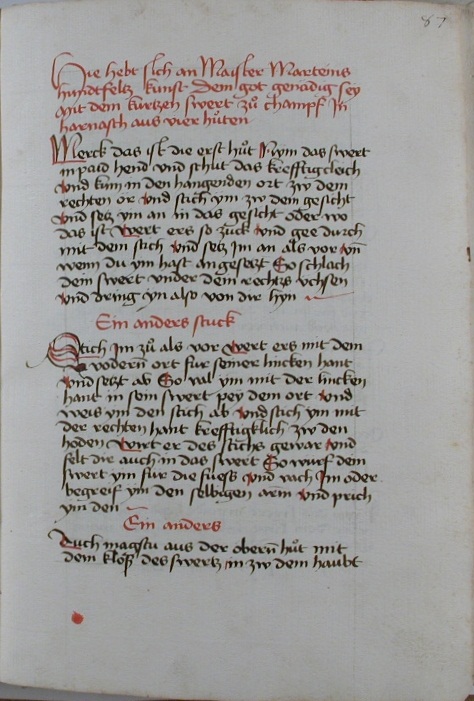 87
Hie hebt sich an Maister Marteins
hundtfeltz kunst dem got genädig sey
Mit dem kurtzen swert zů champf In
harnasch aus vier hůten
Merck das ist die erst hůt Nym das swert
in paid hend vnd schut das krefftigcleich
Vnd kum in den hangenden ort zw dem
rechten or Vnd stich ym zw dem gesicht
Vnd setz ym an in das gesicht oder wo
das ist Wert ers so zuck Vnd gee durch
mit dem stich Vnd setz Im an als vor Vnd
wenn du ym hast angesetzt So schlach
dein swert vnder dein rechtz vchsen
Vnd dring yn also von dir hyn
Ein anders stuck
Stich Im zů als vor Wert ers mit dem
vodern̄ ort fur seiner lincken hant
Vnd setzt ab So val ym mit der lincken
hant in sein swert pey dem ort Vnd
weis ym den stich ab Vnd stich ym mit
der rechten hant krefftigklich zw den
hoden Wirt er des stichs gewar Vnd
felt dir auch in das swert So wurf dein
swert ym fur die fuess Vnd vach Im oder
begreif ym den selbigen arm Vnd prich
ym den
Ein anders
Auch magstu aus der obern̄ hůt mit
dem kloß des swertz in zw dem haubt